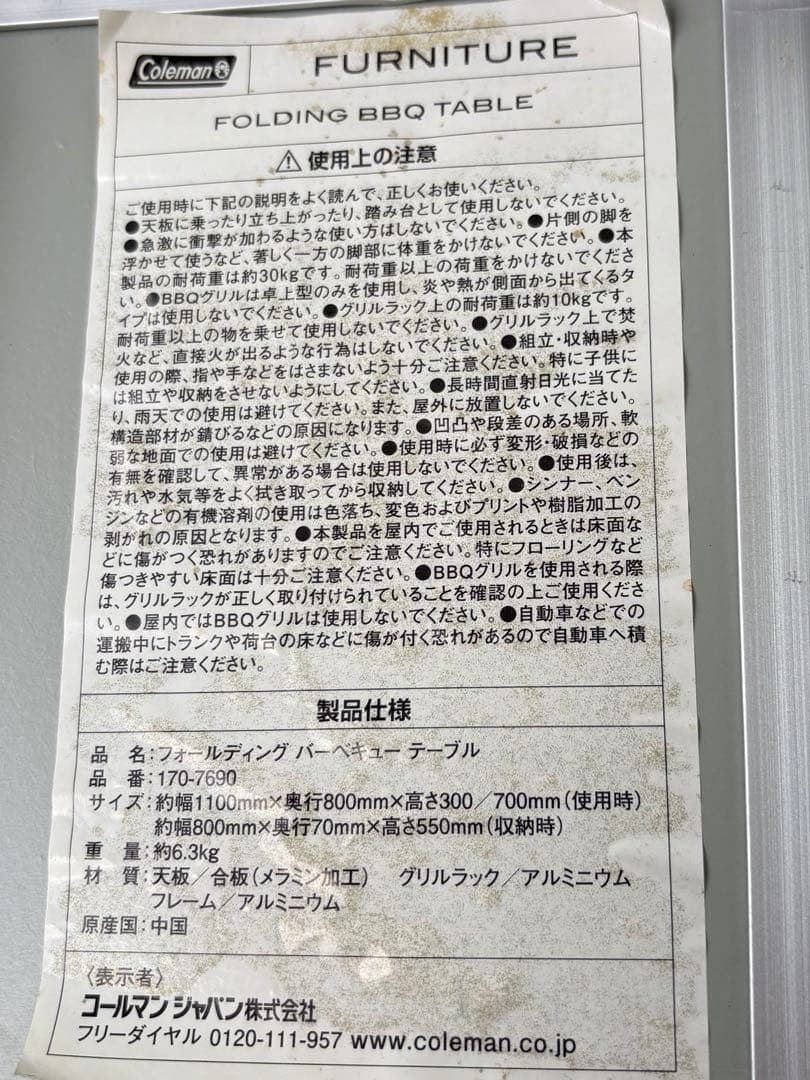 Coleman
FURNITURE
FOLDING BBQ TABLE
⚠使用上の注意
ご使用時に下記の説明をよく読んで、正しくお使いください。
●天板に乗ったり立ち上がったり、踏み台として使用しないでください。
●急激に衝撃が加わるような使い方はしないでください。●片側の脚を
浮かせて使うなど、著しく一方の脚部に体重をかけないでください。●本
製品の耐荷重は約30kgです。耐荷重以上の荷重をかけないでくださ
い。●BBQグリルは卓上型のみを使用し、炎や熱が側面から出てくるタ
イプは使用しないでください。●グリルラック上の耐荷重は約10kgです。
耐荷重以上の物を乗せて使用しないでください。●グリルラック上で焚
火など、直接火が出るような行為はしないでください。●組立・収納時や
使用の際、指や手などをはさまないよう十分ご注意ください。特に子供に
は組立や収納をさせないようにしてください。●長時間直射日光に当てた
り、雨天での使用は避けてください。また、屋外に放置しないでください。
構造部材が錆びるなどの原因になります。●凹凸や段差のある場所、軟
弱な地面での使用は避けてください。●使用時に必ず変形・破損などの
有無を確認して、異常がある場合は使用しないでください。●使用後は、
汚れや水気等をよく拭き取ってから収納してください。●シンナー、ベン
ジンなどの有機溶剤の使用は色落ち、変色およびプリントや樹脂加工の
剥がれの原因となります。●本製品を屋内でご使用されるときは床面な
どに傷がつく恐れがありますのでご注意ください。特にフローリングなど
傷つきやすい床面は十分ご注意ください。●BBQグリルを使用される際
は、グリルラックが正しく取り付けられていることを確認の上ご使用くださ
い。●屋内ではBBQグリルは使用しないでください。●自動車などでの
運搬中にトランクや荷台の床などに傷が付く恐れがあるので自動車へ積
む際はご注意ください。
製品仕様
品 名:フォールディング バーベキュー テーブル
品 番:170-7690
サイズ:約幅1100mm×奥行800mm×高さ300／700mm(使用時)
約幅800mm×奥行70mm×高さ550mm(収納時)
重 量:約6.3kg
材 質:天板／合板(メラミン加工) グリルラック／アルミニウム
フレーム／アルミニウム
原産国:中国
〈表示者〉
コールマン ジャパン株式会社
フリーダイヤル 0120-111-957 www.coleman.co.jp